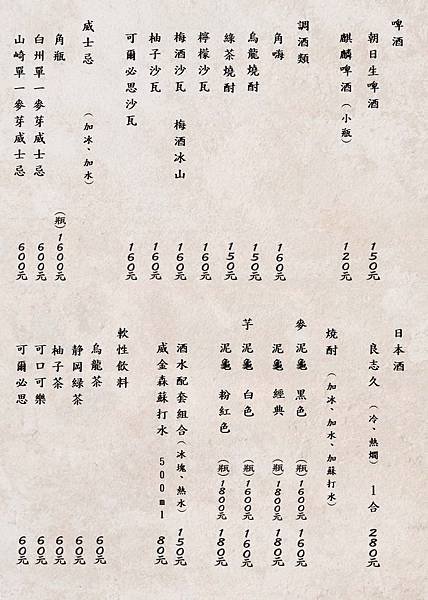 啤酒
朝日生啤酒 150元
麒麟啤酒(小瓶) 120元
調酒類
角嗨 160元
烏龍燒酎 150元
綠茶燒酎 150元
檸檬沙瓦 160元
梅酒沙瓦 梅酒冰山 160元
柚子沙瓦 160元
可爾必思沙瓦 160元
威士忌 (加冰、加水)
角瓶 (瓶)1600元
白州單一麥芽威士忌 600元
山崎單一麥芽威士忌 600元
日本酒
良志久 (冷、熱燗) 1合 280元
燒酎 (加冰、加水、加蘇打水)
麥 泥龜 黑色 (瓶)1600元 160元
泥龜 經典 (瓶)1800元 180元
芋 泥龜 白色 (瓶)1600元 160元
泥龜 粉紅色 (瓶)1800元 180元
酒水配套組合(冰塊、熱水) 150元
威金森蘇打水 500ml 80元
軟性飲料
烏龍茶 60元
靜岡綠茶 60元
柚子茶 60元
可口可樂 60元
可爾必思 60元